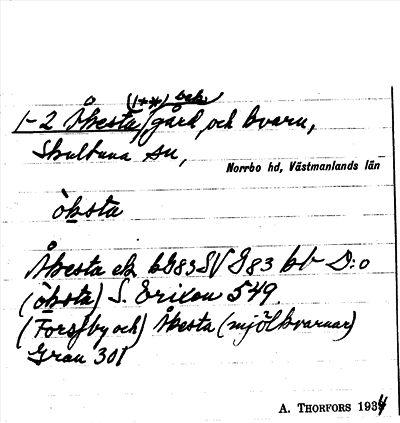 (1+*) bek.
1-2 Åkesta, gård och kvarn,
Skultuna sn,
Norrbo hd, Västmanlands län
òksta
Åkesta ek bG83SV G83 bb D:o
(òksta) S. Erixon 549.
(Forsby och) Åkesta (mjölkvarnar)
Grau 301
A. THORFORS 1934